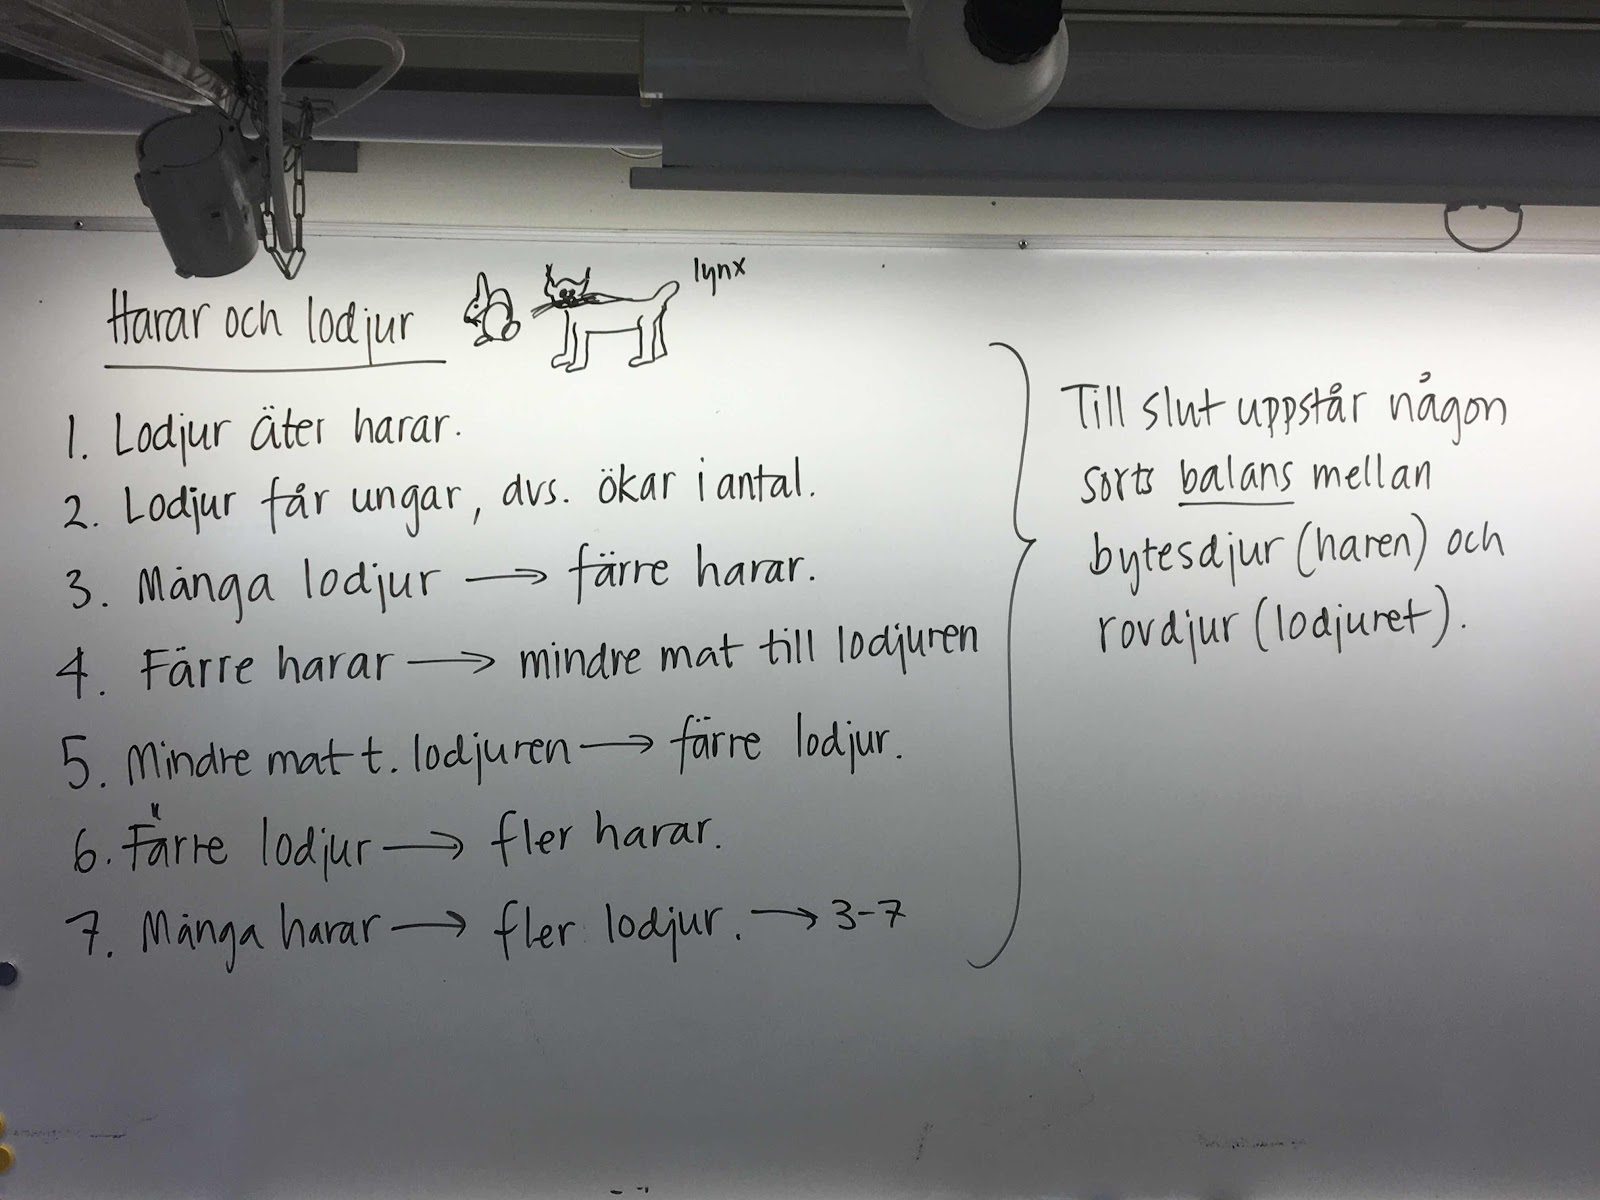 Harar och lodjur
lynx
1. Lodjur äter harar.
2. Lodjur får ungar, dvs. ökar i antal.
3. Många lodjur → färre harar.
4. Färre harar → mindre mat till lodjuren
5. Mindre mat t. lodjuren → färre lodjur.
6. Färre lodjur → fler harar.
7. Många harar → fler lodjur. → 3-7
Till slut uppstår någon
sorts balans mellan
bytesdjur (haren) och
rovdjur (lodjuret).